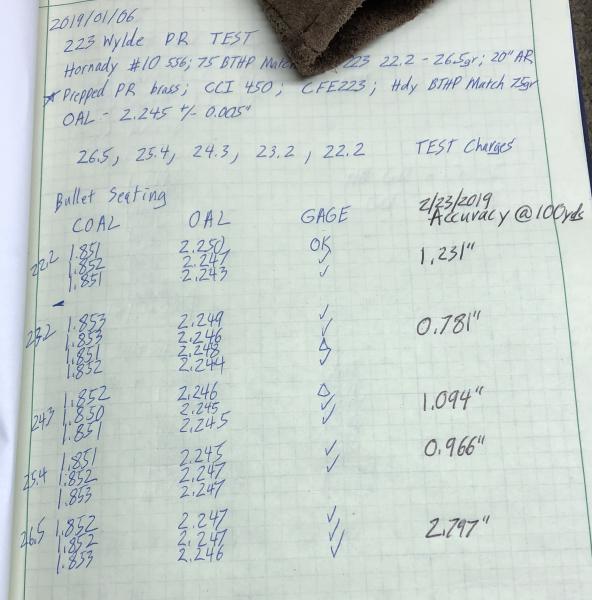 2019/01/06
223 Wylde PR TEST
Hornady #10 556; 75 BTHP Match 223 22.2 - 26.5gr; 20" AR
Prepped PR brass; CCI 450; CFE223; Hdy BTHP Match 75gr
OAL - 2.245 +/- 0.005"
26.5, 25.4, 24.3, 23.2, 22.2 TEST Charges
Bullet Seating 2/23/2019
COAL OAL GAGE Accuracy @ 100yds
22.2 1.851 2.250 OK 1.231"
1.852 2.247 ✓
1.851 2.243 ✓
23.2 1.853 2.249 ✓ 0.781"
1.853 2.246 ✓
1.851 2.248 △
1.852 2.244 ✓
24.3 1.852 2.246 △ 1.094"
1.850 2.245 ✓
1.851 2.245 ✓
25.4 1.851 2.245 ✓ 0.966"
1.852 2.247 ✓
1.853 2.247
26.5 1.852 2.247 ✓ 2.797"
1.852 2.247 ✓
1.853 2.246 ✓